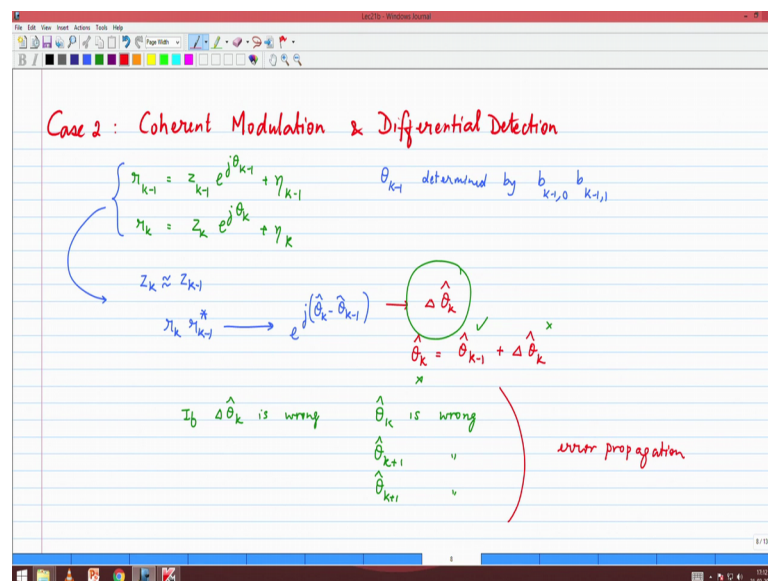 Lec21b - Windows Journal
File Edit View Insert Actions Tools Help
Page Width
B I
Case 2 : Coherent Modulation & Differential Detection
r_{k-1} = z_{k-1} e^{jθ_{k-1}} + η_{k-1}
θ_{k-1} determined by b_{k-1,0} b_{k-1,1}
r_k = z_k e^{jθ_k} + η_k
z_k ≈ z_{k-1}
r_k r*_{k-1} → e^{j(θ̂_k - θ̂_{k-1})} → Δθ̂_k
θ̂_k = θ̂_{k-1} + Δθ̂_k
If Δθ̂_k is wrong θ̂_k is wrong
θ̂_{k+1} "
θ̂_{k+1} "
error propagation
8
8 / 13